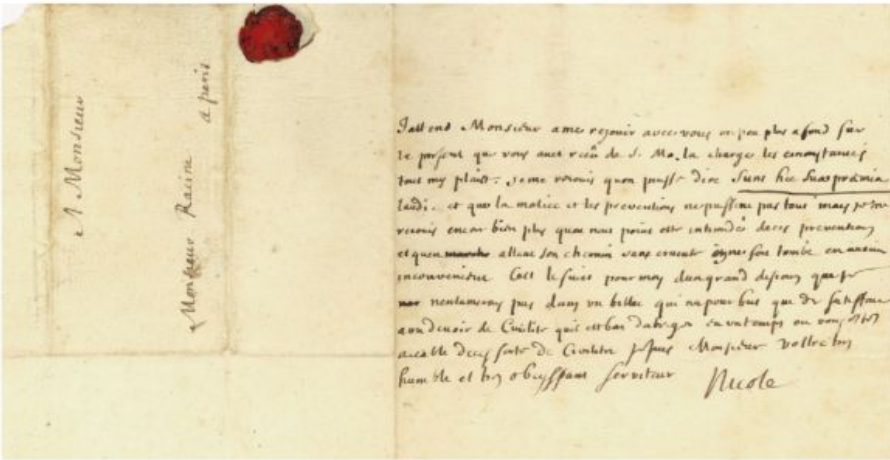 A Monsieur
Monsieur Racine
a paris
Jattend Monsieur a me rejouir avec vous un peu plus a fond sur
le present que vous avez receu de S. Ma. la charge les circonstances
tout my plaist. je me rejouis quon puisse dire sunt hic sua præmia
laudi. et que la malice et les preventions ne puissent pas tout mais je me
rejouis encor bien plus quon nait point esté intimidé de ces preventions
et quen allant son chemin sans on ne soit tombé en aucun
inconvenient Cest le sujet pour moy dun grand discours que je
nentameray pas dans un billet qui na pour but que de satisfaire
a un devoir de Civilité quil est bon dabreger en un temps ou vous estes
accablé de ces sorte de Civilités je suis Monsieur vostre tres
humble et tres obeyssant serviteur Nicole